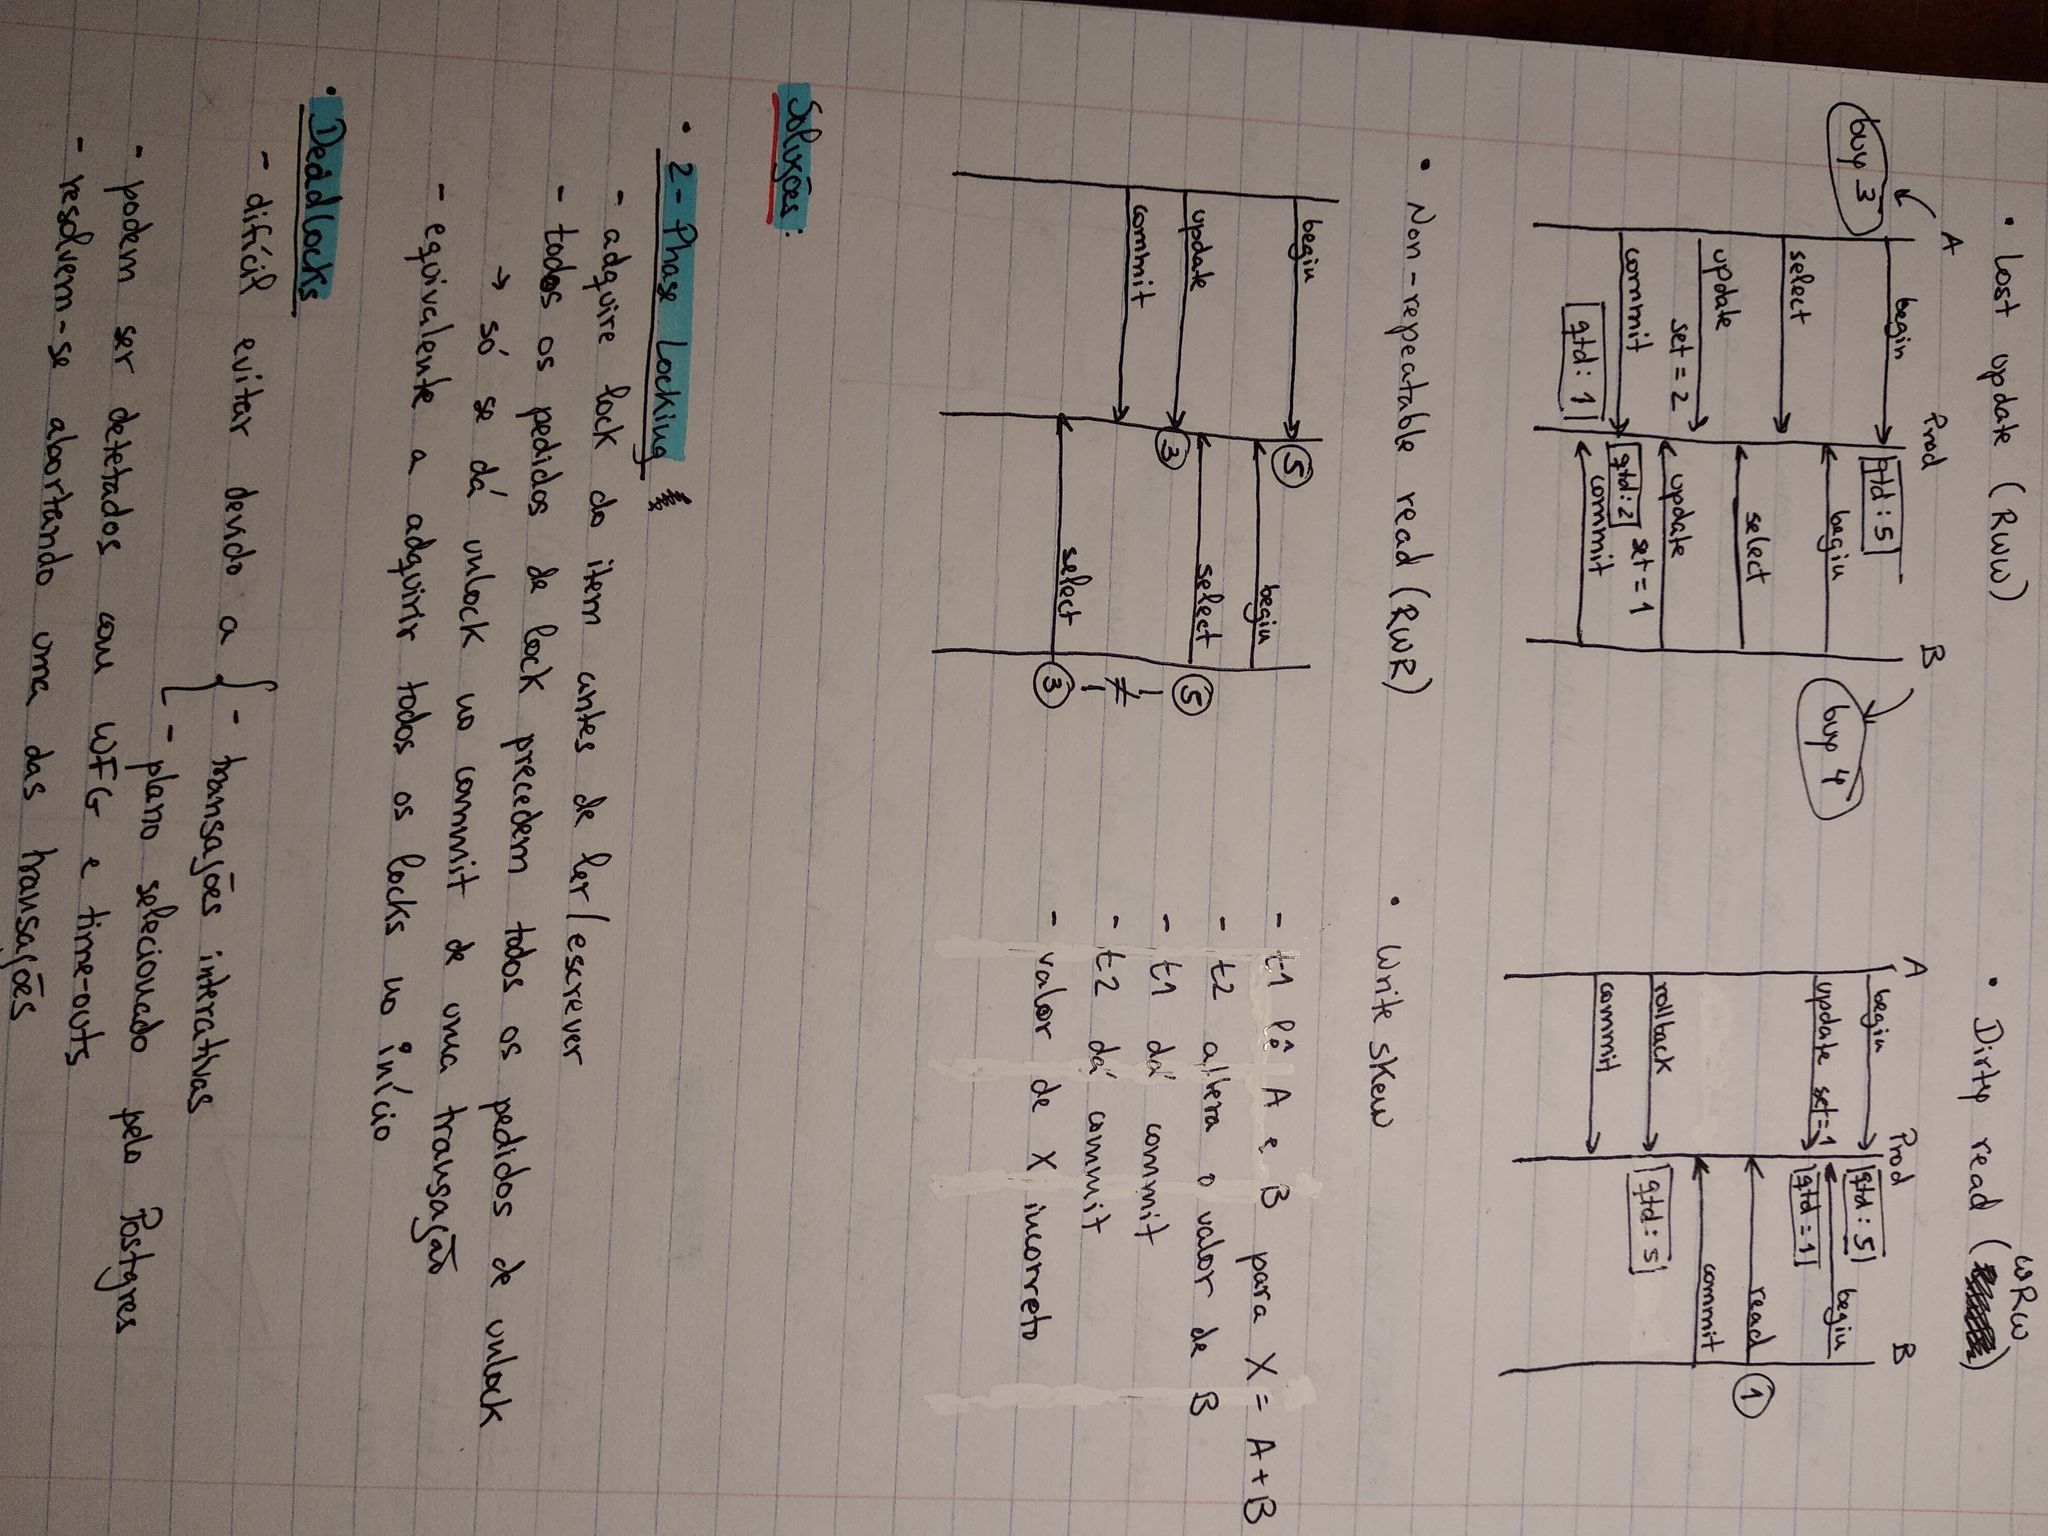 • Lost update (RWW)
A
Prod
B
begin
qtd: 5
buy 3
begin
buy 4
select
select
update
set = 2
update
set = 1
commit
qtd: 2
commit
qtd: 1
WRW
• Dirty read ( )
A
Prod
B
begin
qtd: 5
begin
update set=1
qtd = 1
read
1
commit
rollback
qtd: 5
commit
• Non-repeatable read (RWR)
begin
5
begin
select
5
update
3
commit
≠
select
3
• Write skew
- t1 lê A e B para X = A + B
- t2 altera o valor de B
- t1 dá commit
- t2 dá commit
- valor de X incorreto
Soluções:
• 2-Phase Locking
- adquire lock do item antes de ler/escrever
- todos os pedidos de lock precedem todos os pedidos de unlock
→ só se dá unlock no commit de uma transação
- equivalente a adquirir todos os locks no início
• Deadlocks
- difícil evitar devido a { - transações interativas
- plano selecionado pelo Postgres
- podem ser detetados com WFG e time-outs
- resolvem-se abortando uma das transações